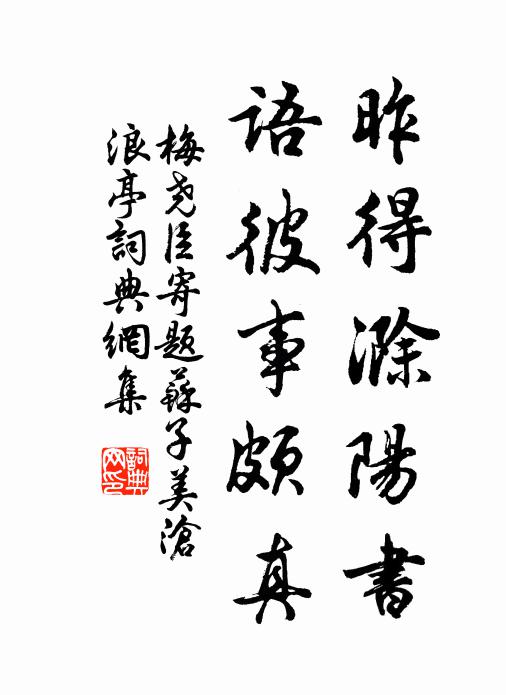 昨得滁陽書
語彼事頗真
梅堯臣寄題蘇子美滄
浪亭詞典網集
詞典
网印